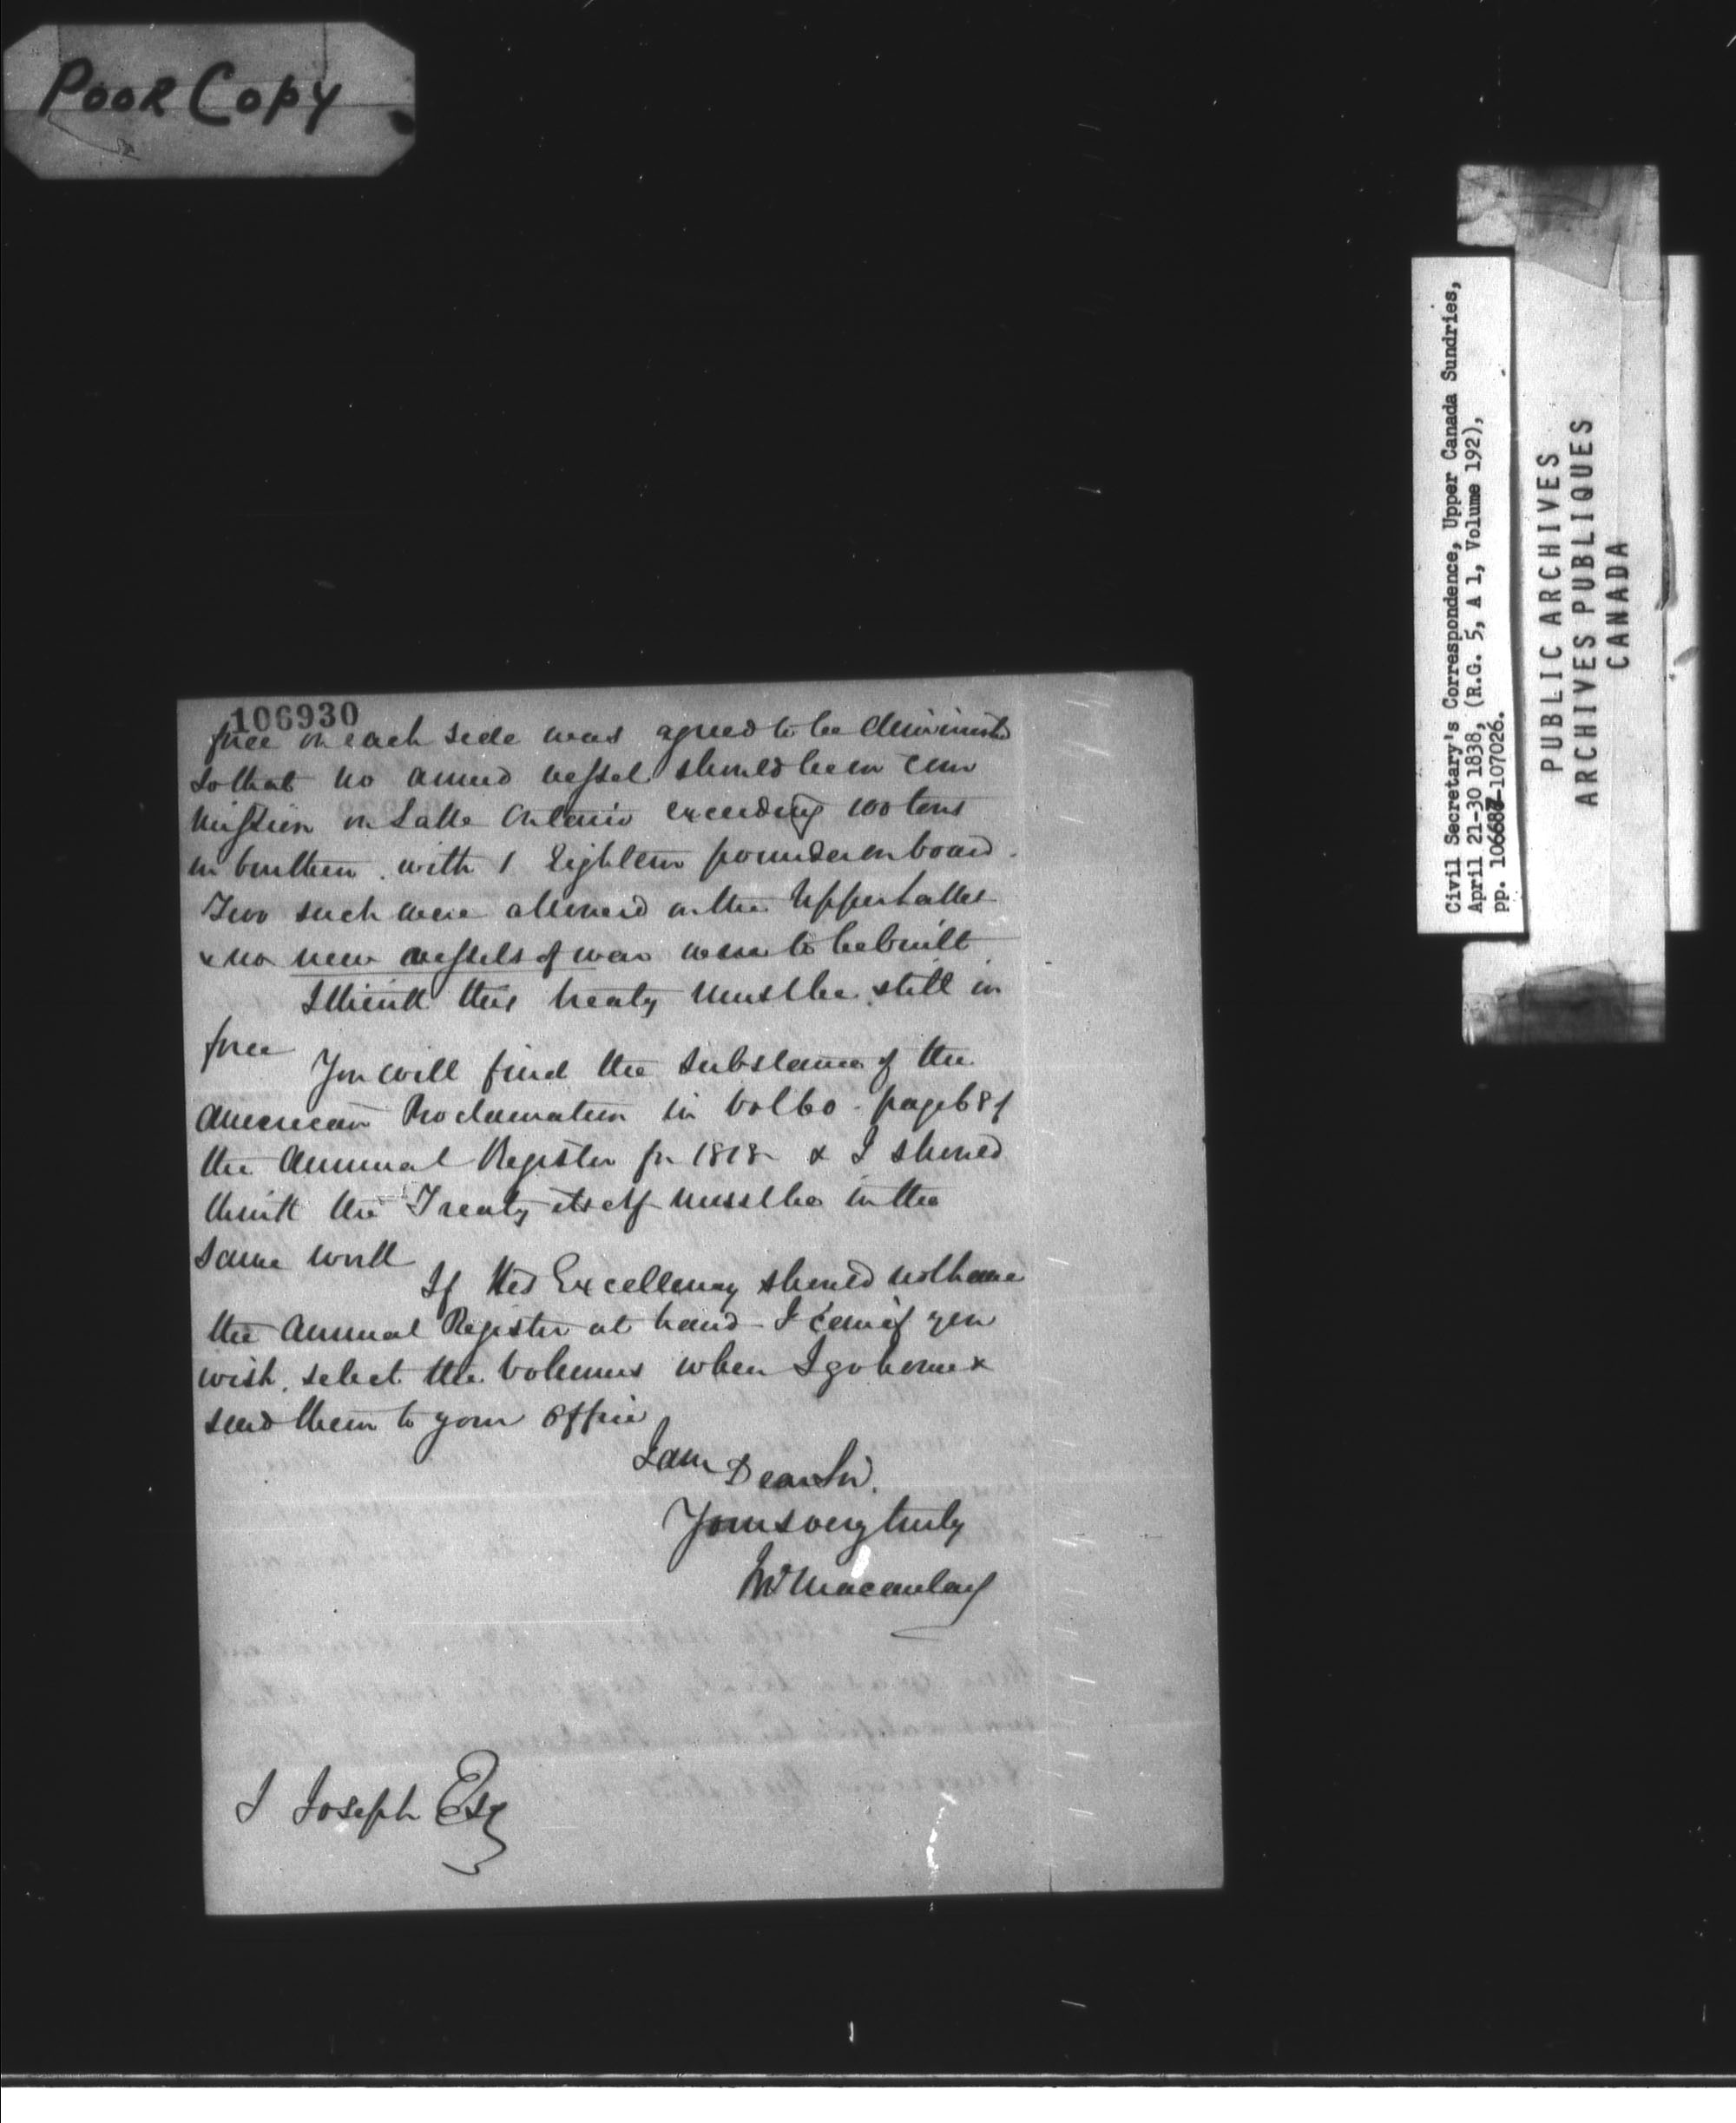 POOR COPY
106930
force on each side was agreed to be diminished
so that no armed vessel should be in com
mission on Lake Ontario exceeding 100 tons
in burthen. with 1 Eighteen pounder on board.
Two such were allowed on the Upper Lakes
& no new vessels of war were to be built
I think this treaty must be still in
force
You will find the substance of the
American Proclamation in vol 60 - page
the Annual Register for 1818 & I should
think the Treaty itself must be in the
same work
If His Excellency should not have
the Annual Register at hand - I can if you
wish, select the volumes when I go home &
send them to your office
I am Dear Sir.
Yours very truly
Macaulay
J Joseph Esq
Civil Secretary's Correspondence, Upper Canada Sundries,
April 21-30 1838, (R.G. 5, A 1, Volume 192),
pp. 106687-107026.
PUBLIC ARCHIVES
ARCHIVES PUBLIQUES
CANADA